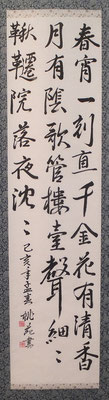 春宵一刻直千金花有清香
月有陰歌管樓臺聲細〻
鞦韆院落夜沈〻 己亥年孟 書